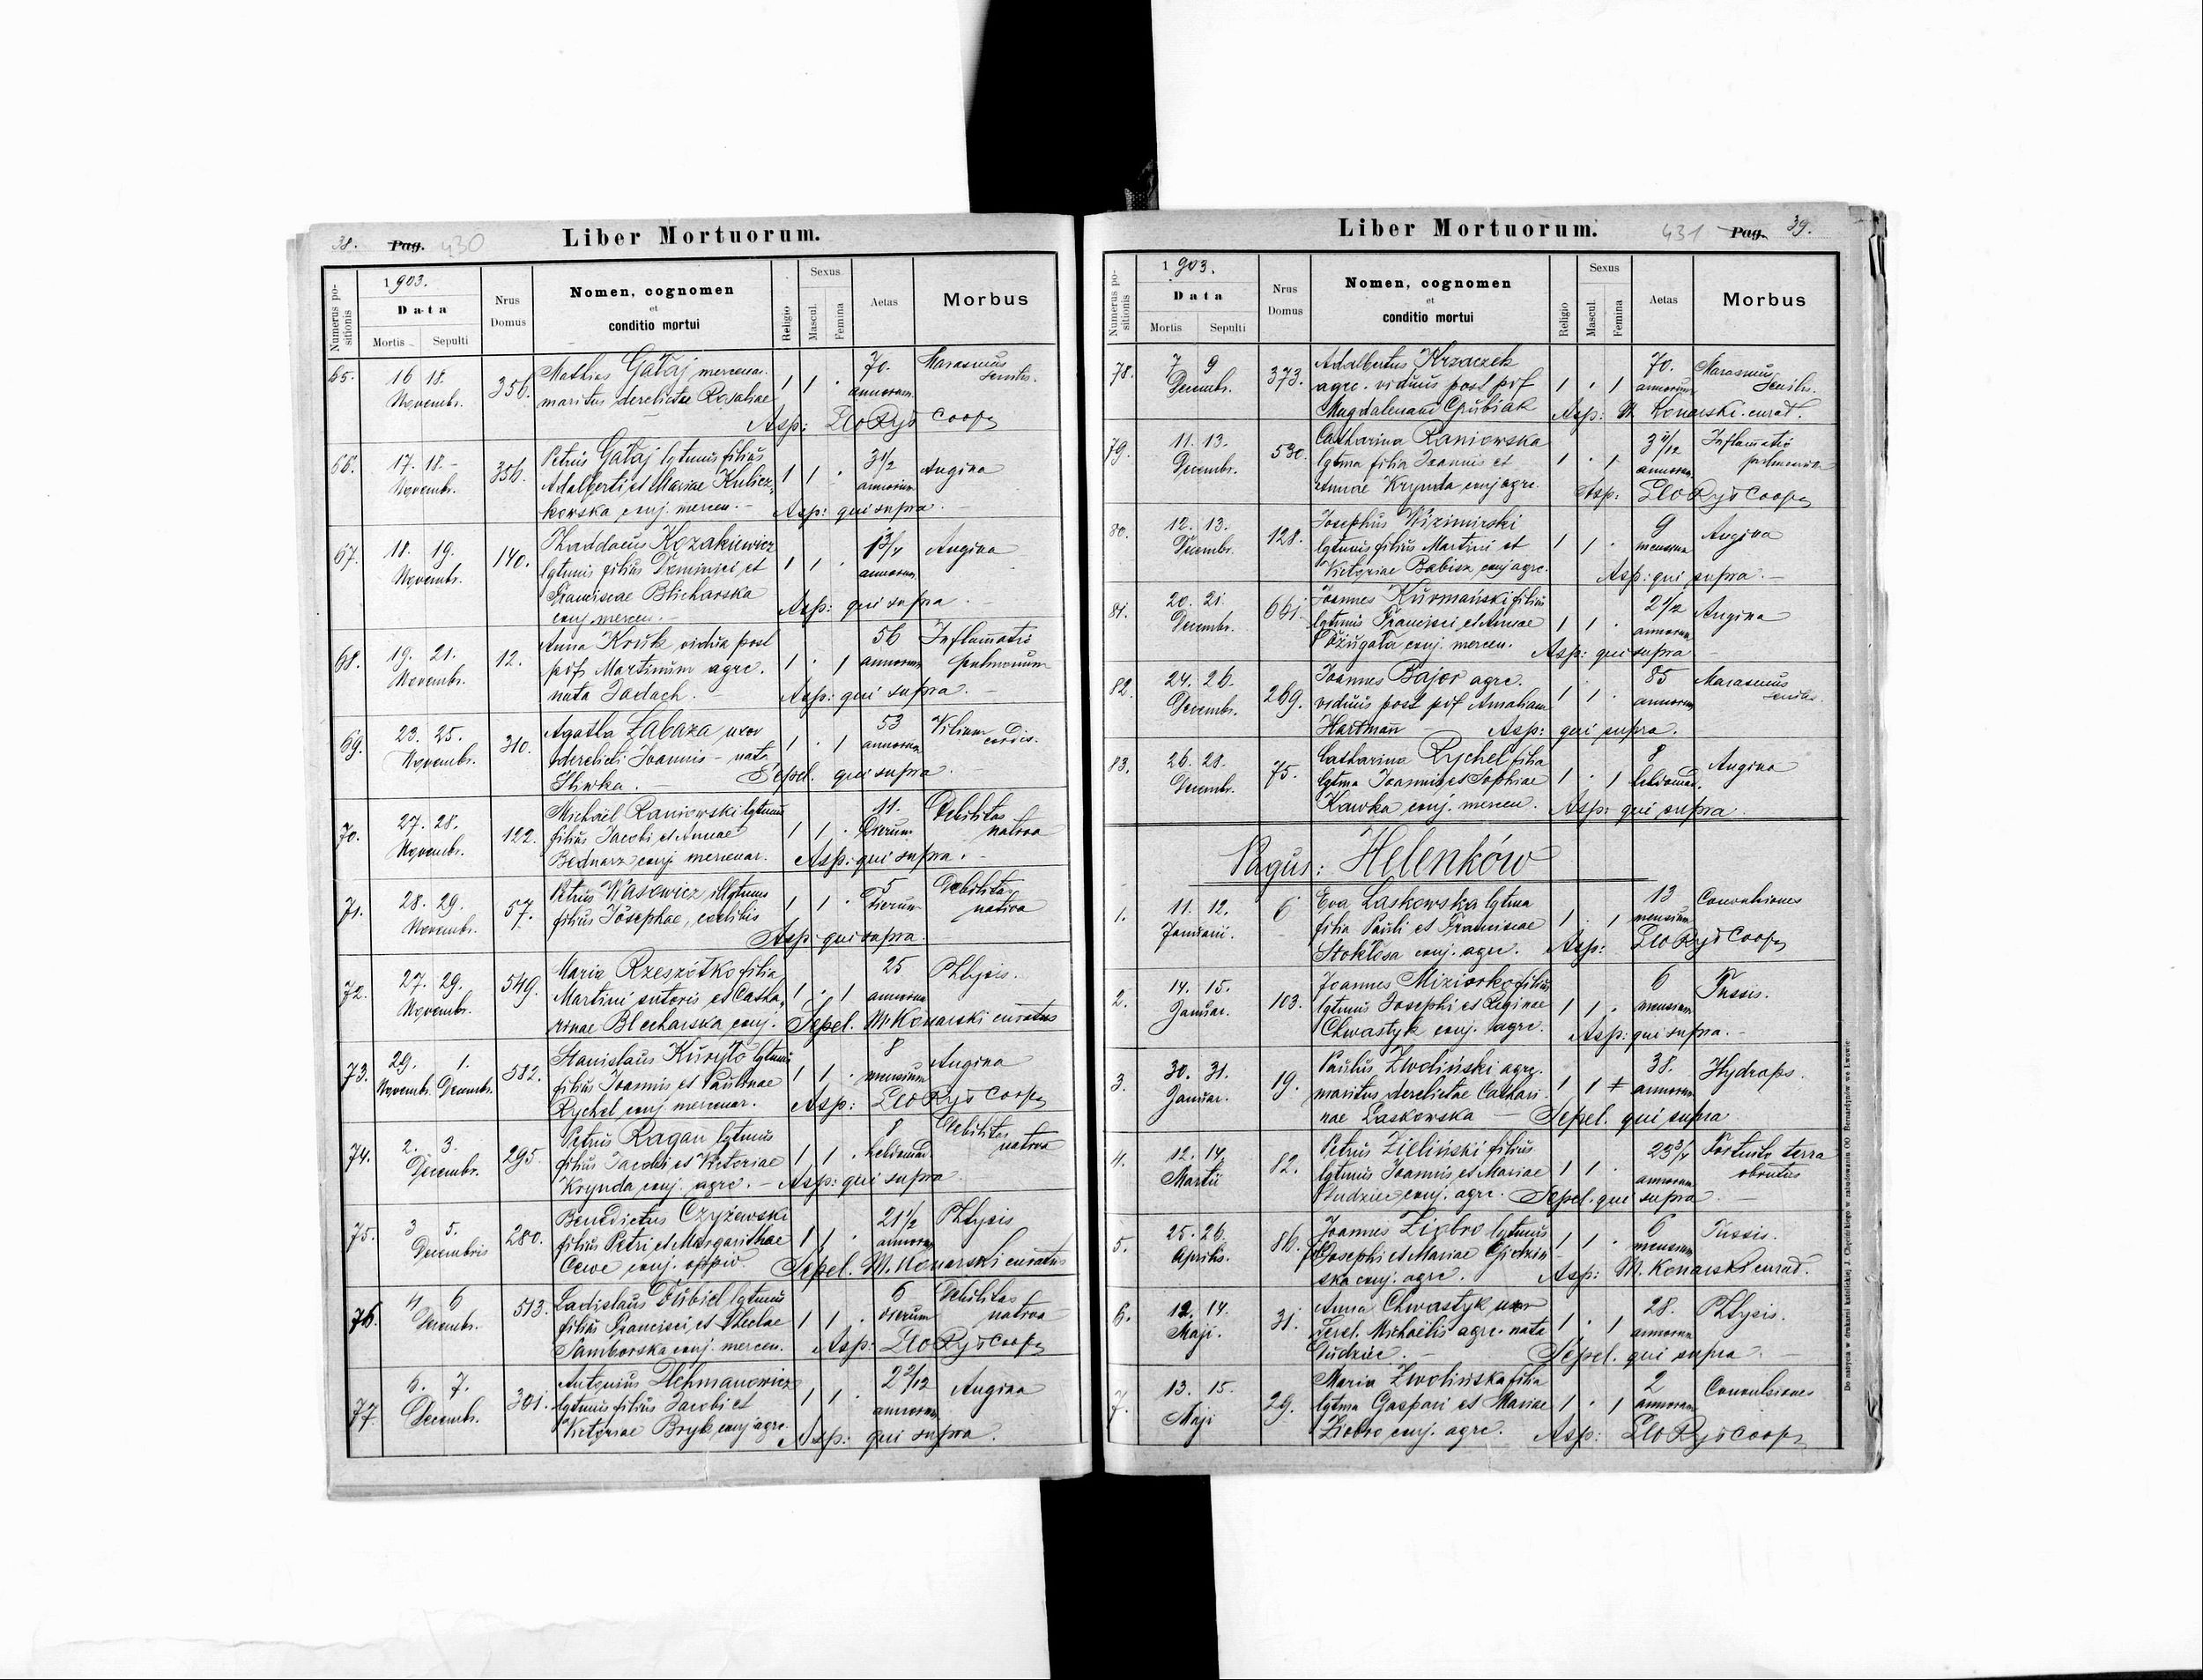 38. Pag. 430 Liber Mortuorum.
Numerus positionis
1903.
Data
Mortis Sepulti
Nrus Domus
Nomen, cognomen
et
conditio mortui
Religio
Sexus
Mascul. Femina
Aetas
Morbus
65. 16 18. Novembr. 356.
Mathias Gałaj mercenar. 1 1 70. annorum Marasmus senilis.
maritus derelictae Rosaliae
Asp: Leo Ryś Coop
66. 17. 18. Novembr. 356.
Petrus Gałaj lgtmus filius 1 1 . 3 1/2 annorum Angina
Adalberti et Mariae Kulicz-
kowska conj. mercen. - Asp: qui supra.
67. 18. 19. Novembr. 140.
Thaddaeus Kozakiewicz 1 1 . 1 3/4 annorum Angina
lgtmus filius Dominici et
Franciscae Blicharska
conj mercen. - Asp: qui supra
68. 19. 21. Novembr. 12.
Anna vidua post 1 . 1 56 annorum Inflamatio pulmonum
pdf Martinum agrc.
nata Jadach. - Asp: qui supra. -
69. 23. 25. Novembr. 310.
Agatha Łabaza, uxor 1 . 1 53 annorum Vitium cordis.
derelicti Joannis - nata
Śliwka. - Sepel. qui supra
70. 27. 28. Novembr. 122.
Michaël Raniowski lgtmus 1 1 . 11. dierum Debilitas nativa
filius Jacobi et Annae
Bednarz conj mercenar. Asp: qui supra. -
71. 28. 29. Novembr. 57.
Petrus Wasowicz illgtmus 1 1 . 5 dierum Debilitas nativa
filius Josephae, caelibis
Asp: qui supra.
72. 27. 29. Novembr. 549.
Maria Rzeszótko filia 1 . 1 25 annorum Phtysis.
Martini sutoris et Catha-
rinae Blecharska conj. Sepel. M. Konarski curatus
73. 29. Novembr. 1. Decembr. 582.
Stanislaus Kuryło lgtmus 1 1 . 8 mensium Angina
filius Joannis et Paulinae
Rychel conj mercenar. Asp: Leo Ryś Coop
74. 2. 3. Decembr. 295.
Petrus Ragan lgtmus 1 1 . 8 hebdomad. Debilitas nativa
filius Jacobi et Victoriae
Krynda conj. agrc. - Asp: qui supra
75. 3 5. Decembris 280.
Benedictus Czyżewski 1 1 . 21 1/2 annorum Phtysis
filius Petri et Margarithae
conj. oppid. Sepel. M. Konarski curatus
76. 4 6 Decembr. 513.
Ladislaus Dubiel lgtmus 1 1 . 6 dierum Debilitas nativa
filius Francisci et Theclae
Samborska conj. mercen. Asp: Leo Ryś Coop
77. 6. 7. Decemb. 301.
Antonius Hehmanowicz 1 1 . 2 2/12 annorum Angina
lgtmus filius Jacobi et
Victoriae Bryk conj agrc. Asp: qui supra.
Liber Mortuorum. 431 Pag. 39.
Numerus positionis
1903.
Data
Mortis Sepulti
Nrus Domus
Nomen, cognomen
et
conditio mortui
Religio
Sexus
Mascul. Femina
Aetas
Morbus
78. 7 9 Decembr. 373.
Adalbertus Krzaczek 1 . 1 70. annorum Marasmus senilis.
agrc. viduus post pdf
Magdalenam Grubiak Asp: M. Konarski. curat.
79. 11. 13. Decembr. 530.
Catharina Raniowska 1 . 1 3 11/12 annorum Inflamatio pulmonum
lgtma filia Joannis et
Annae Krynda conj agrc. Asp: Leo Ryś Coop
80. 12. 13. Decembr. 128.
Josephus Wizimirski 1 1 . 9 mensium Angina
lgtmus filius Martini et
Victoriae Babisz conj agrc. Asp: qui supra. -
81. 20. 21. Decembr. 661.
Joannes Kurmański filius 1 1 . 2 1/2 annorum Angina
lgtmus Francisci et Annae
Dżugała conj. mercen. Asp: qui supra
82. 24. 26. Decembr. 269.
Joannes Bajor agrc. 1 1 . 85 annorum Marasmus senilis
viduus post pdf Amaliam
Hartman - Asp: qui supra.
83. 26. 28. Decembr. 75.
Catharina Rychel filia 1 . 1 8 hebdomad. Angina
lgtma Joannis et Sophiae
Kawka conj. mercen. Asp: qui supra
Pagus: Helenków
1. 11. 12. Januarii. 6
Eva Laskowska lgtma 1 . 1 13 mensium Convulsiones
filia Pauli et Franciscae
Stokłosa conj. agrc. Asp: Leo Ryś Coop
2. 14. 15. Januar. 103.
Joannes Miziorko filius 1 1 . 6 mensium Tussis.
lgtmus Josephi et Reginae
Chwastyk conj. agrc. Asp: qui supra. -
3. 30. 31. Januar. 19.
Paulus Zwoliński agrc. 1 1 + 38. annorum Hydrops.
maritus derelictae Cathari-
nae Laskowska - Sepel. qui supra
4. 12. 14. Martii 82.
Petrus Zieliński filius 1 1 . 23 3/4 annorum Fortuito terra obrutus
lgtmus Joannis et Mariae
Dudziec conj. agrc. Sepel. qui supra -
5. 25. 26. Aprilis. 86.
Joannes Ziobro lgtmus 1 1 . 6 mensium Tussis.
f. Josephi et Mariae
ska conj. agrc. Asp: M. Konarski curad.
6. 12. 14. Maji. 31.
Anna Chwastyk uxor 1 . 1 28. annorum Phtysis.
derel. Michaëlis agrc. nata
Dudziec. - Sepel. qui supra. -
7. 13. 15. Maji 29.
Maria Zwolińska filia 1 . 1 2 annorum Convulsiones
lgtma Gaspari et Mariae
Ziobro conj. agrc. Asp: Leo Ryś Coop
Do nabycia w drukarni katolickiej J. Chęcińskiego w zabudowaniu OO. Bernardynów we Lwowie